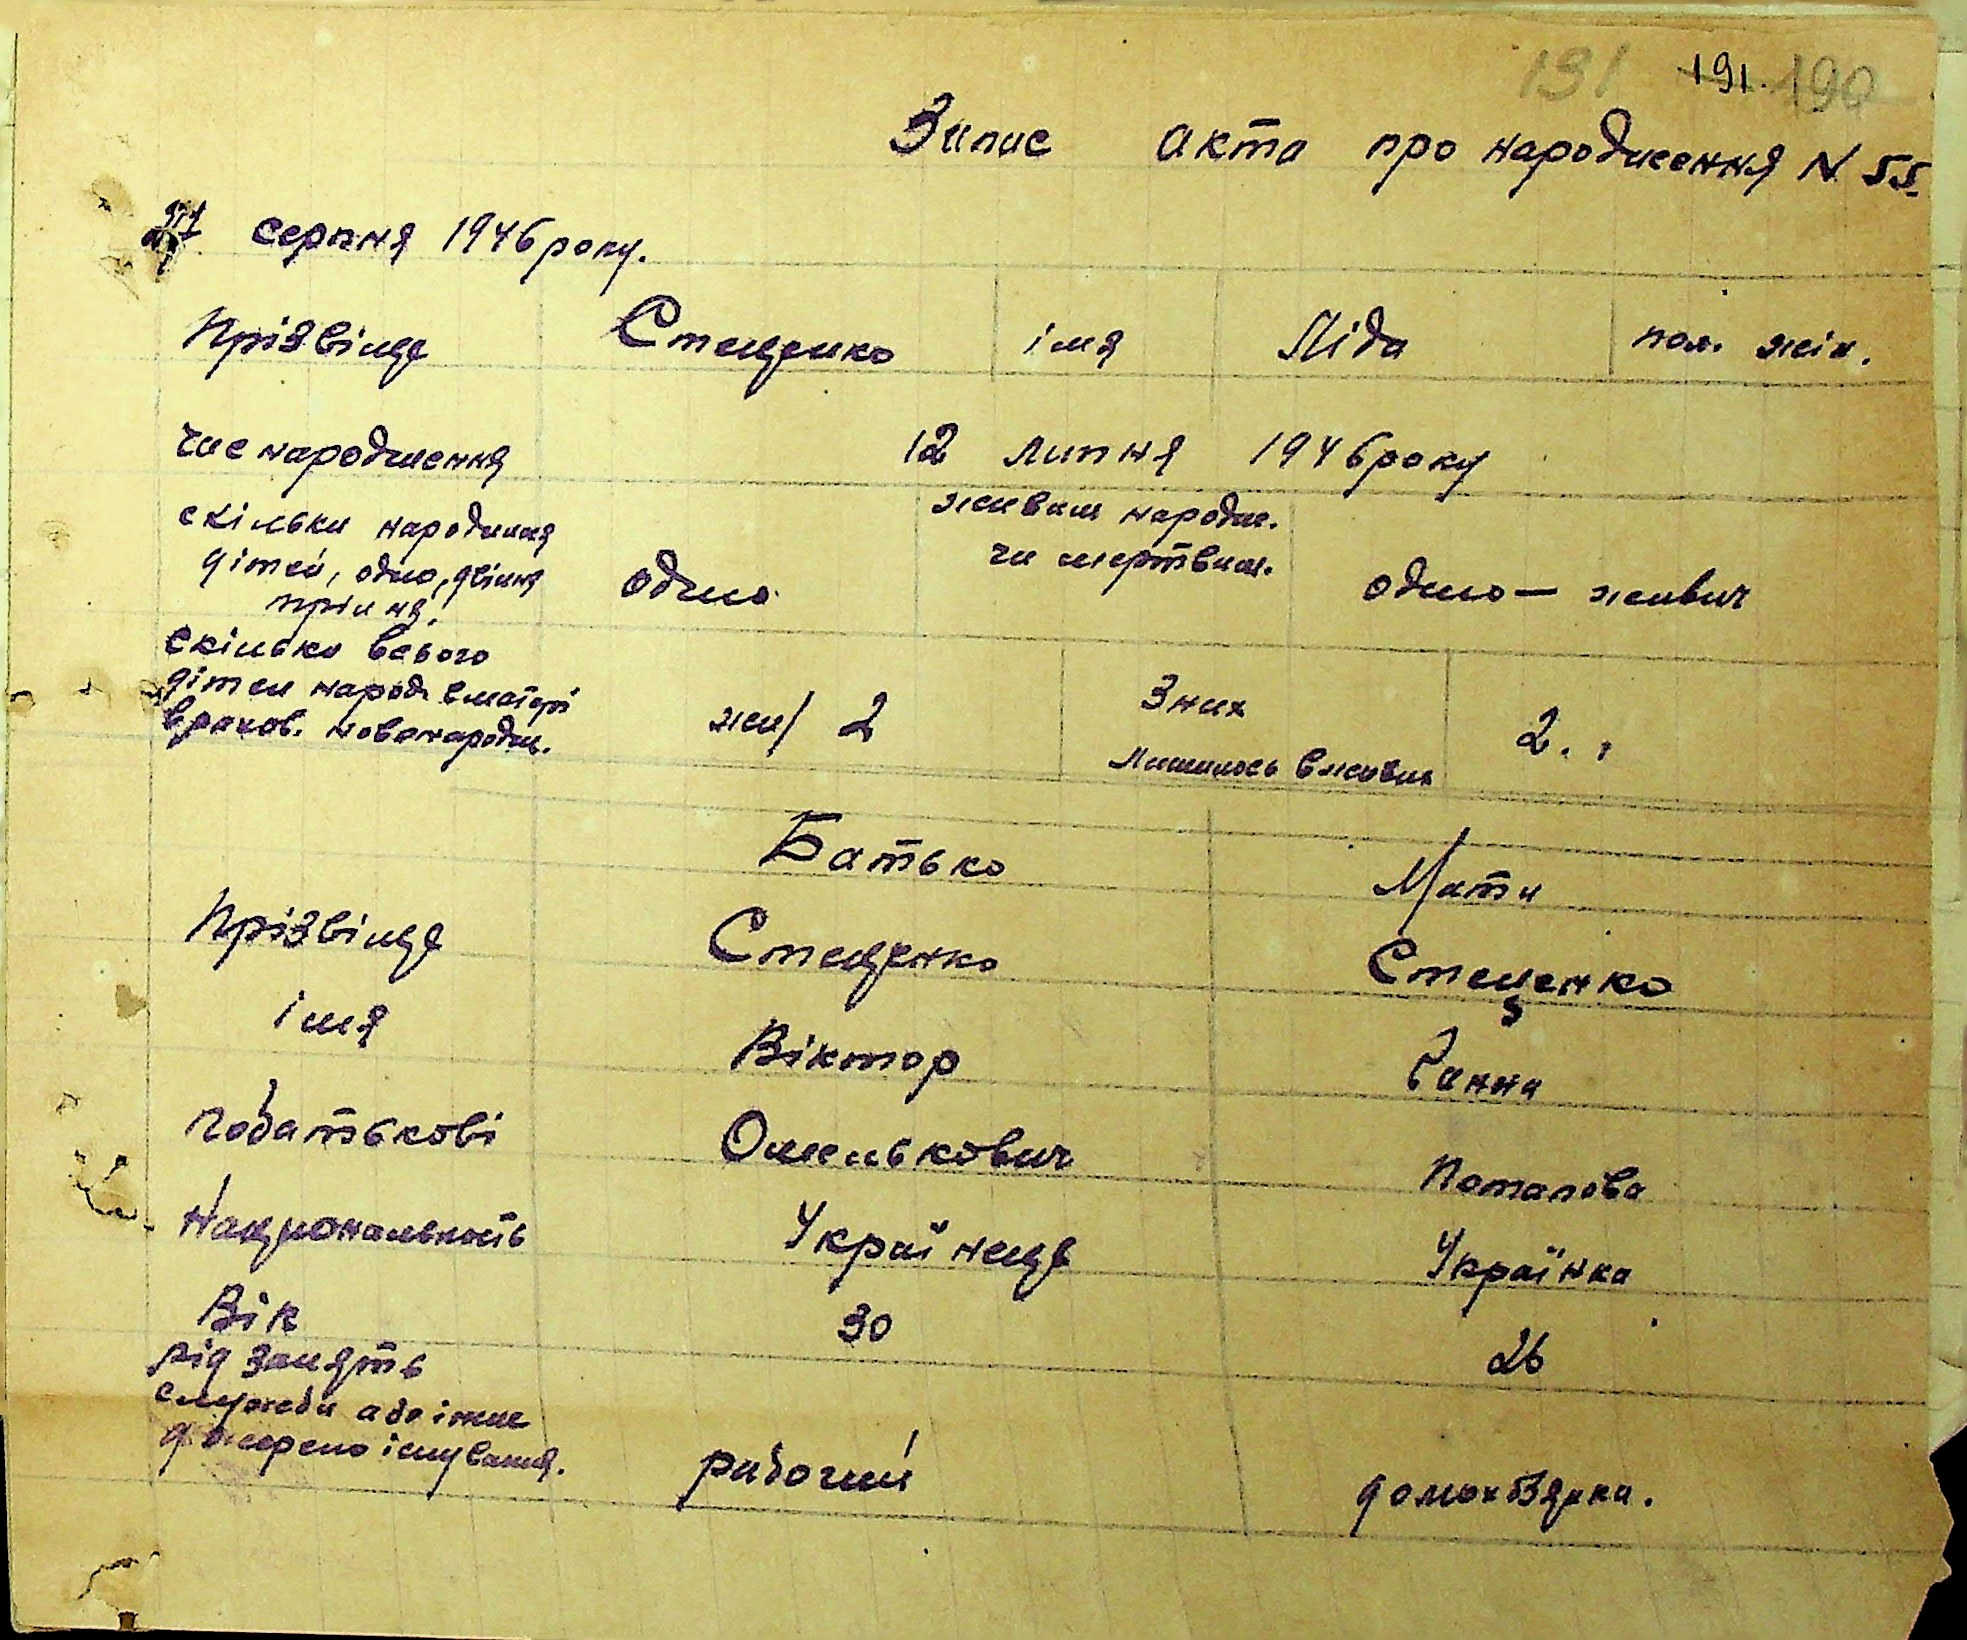 191 191. 190
Запис акта про народження N 55.
серпня 1946 року.
Прізвіще Стеценко імя Ліда пол. жін.
час народження 12 липня 1946 року
скільки народилися живим народж.
дітей, одно, двійня одно чи мертвим. одно — живич
трійня.
Скілько всього
дітей народ. вматері жи/ 2 Зних 2.
врахов. новонародж. Лишилось вживих
Батько Мати
Прізвіще Стеценко Стеценко
імя Віктор Ганна
побатькові Омелькович Потапова
Національність Українець Українка
Вік 30 26
рід занять
служеби або інше
джерело існування. рабочий домохозяйка.